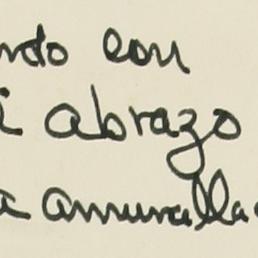 ndo con
i abrazo
a amuralla